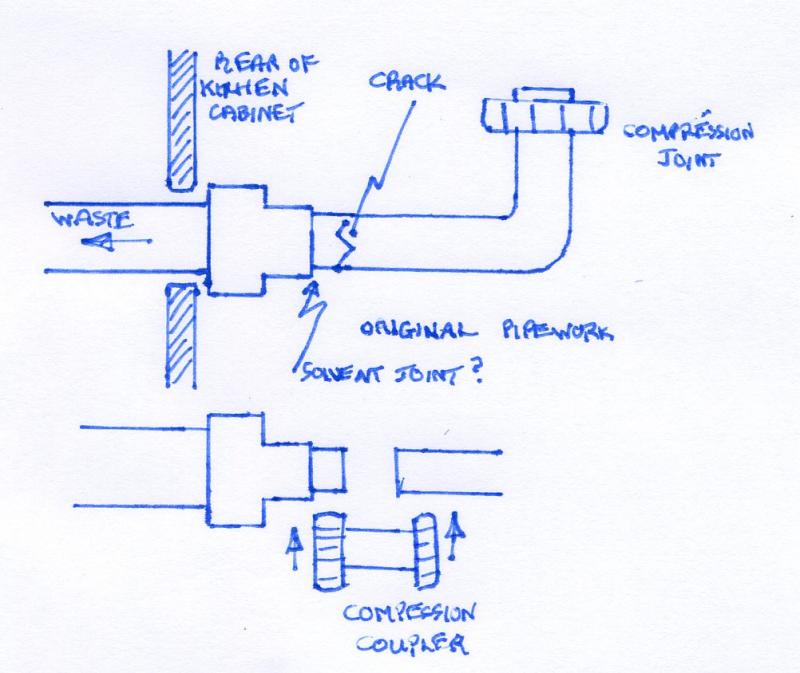 REAR OF
KITCHEN
CABINET
CRACK
COMPRESSION
JOINT
WASTE
ORIGINAL PIPEWORK
SOLVENT JOINT?
COMPESSION
COUPLER